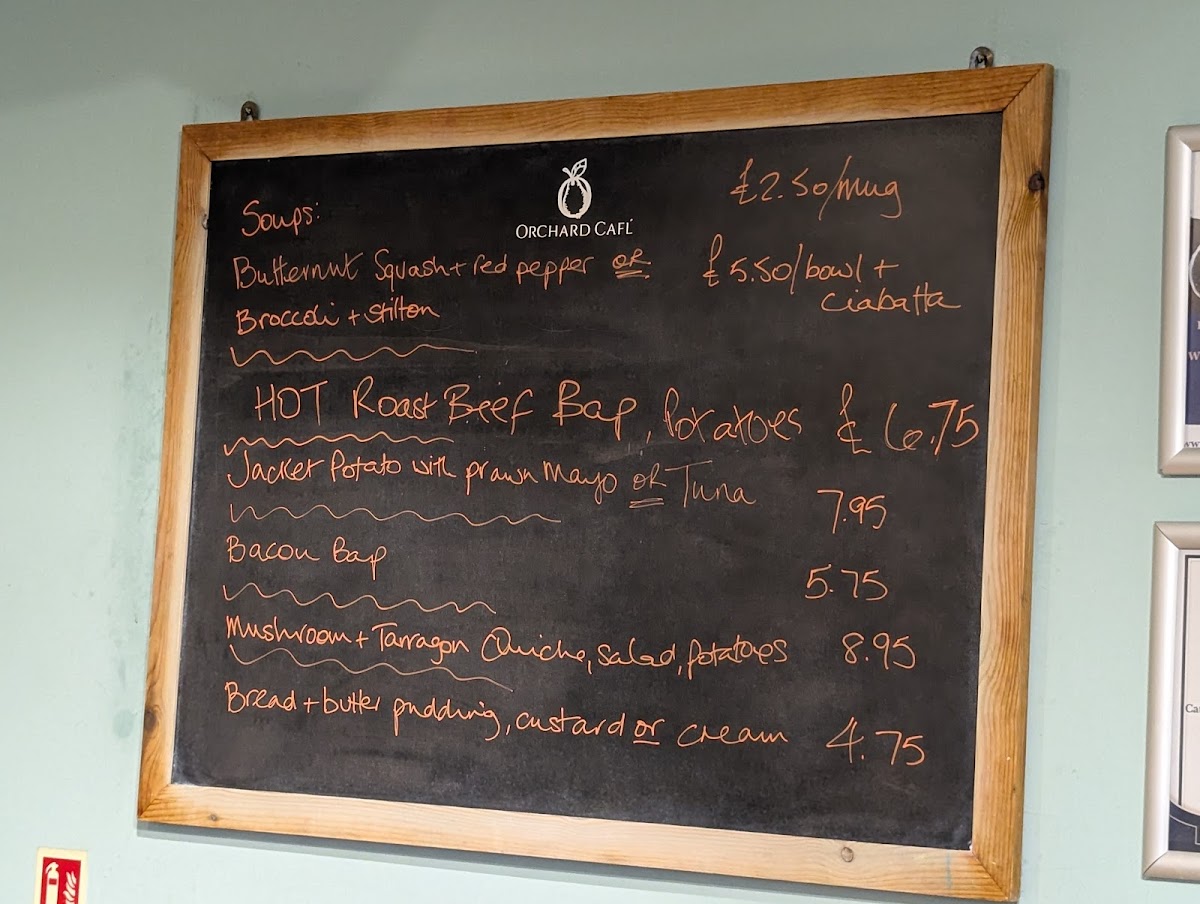 ORCHARD CAFÉ
Soups: £2.50/mug
Butternut Squash + red pepper OR £5.50/bowl +
ciabatta
Broccoli + Stilton
HOT Roast Beef Bap, Potatoes £6.75
Jacket Potato with prawn Mayo OR Tuna 7.95
Bacon Bap 5.75
Mushroom + Tarragon Quiche, salad, potatoes 8.95
Bread + butter pudding, custard or cream 4.75